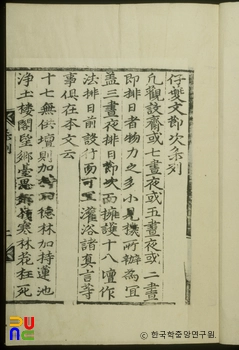 仔夔文節次条列
凡觀設齋或七晝夜或五晝夜或二晝
即排日者物力之多小見機所辦為宜
盖三晝夜排日節次而擁護十八壇作
法排日前設行而可宜灌浴諸真言等
事俱在本文云
十七無供壇則加 德林加持蓮池
浄土楼閣望鄉臺 寒林花狂死
ⓒ한국학중앙연구원